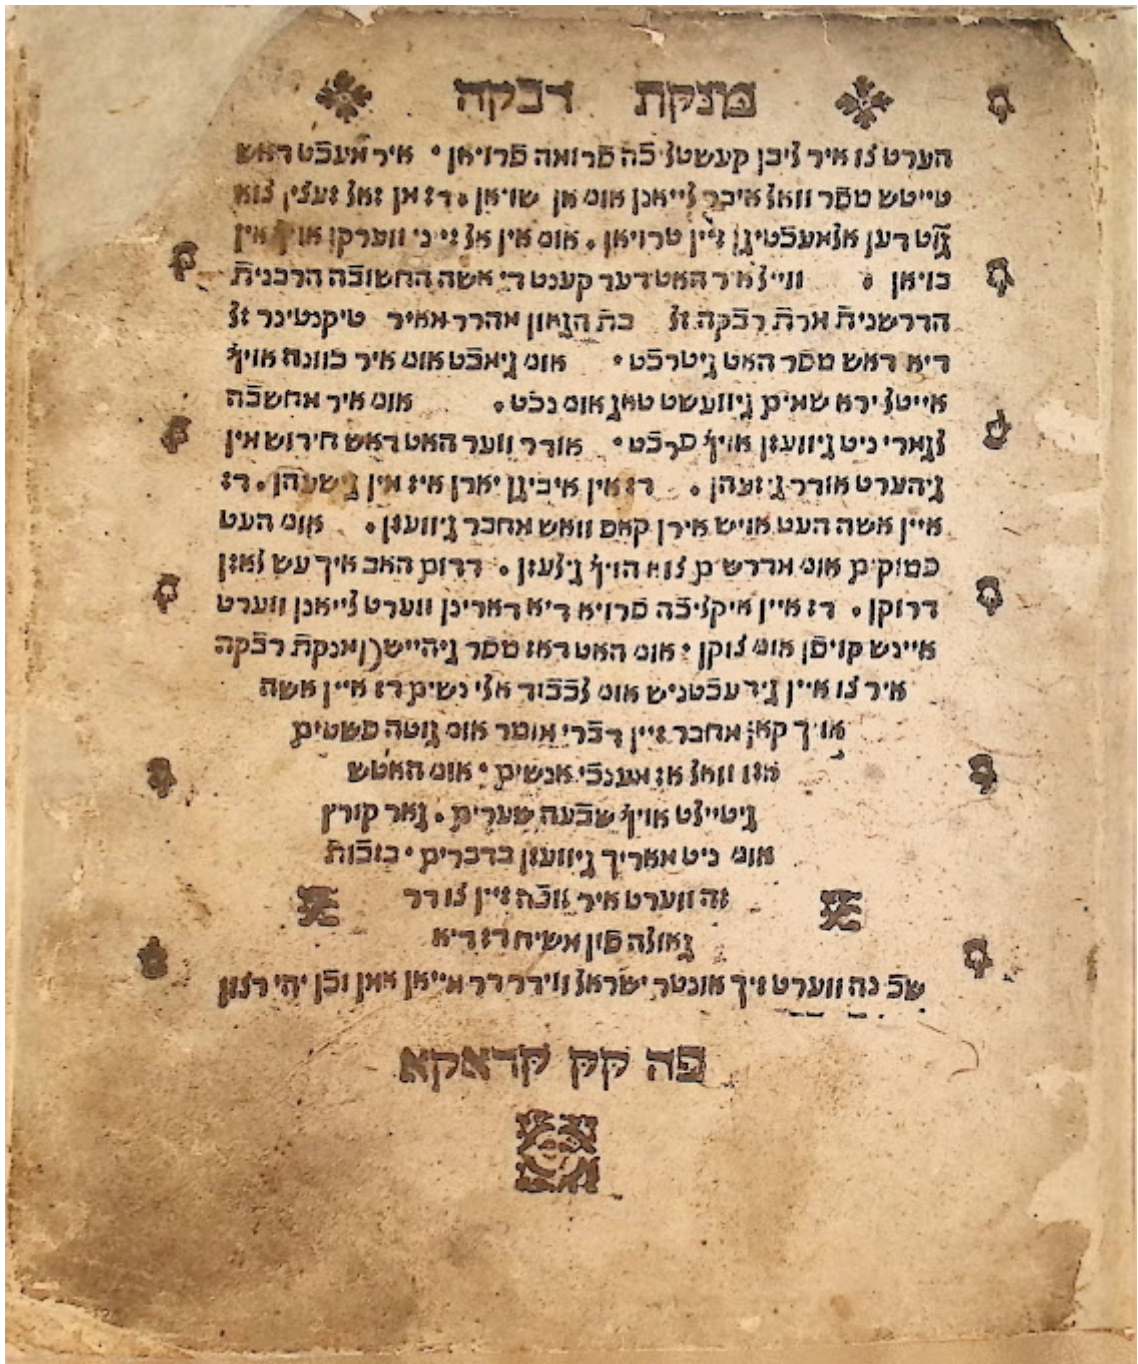 מנקת רבקה
הערט צו איר ליבן קעשטלֿ בֿה פֿרומה פֿרויאן • איר מעכֿט דאש
טייטש ספֿר וואל איבר לייאנן אונ' אן שויאן • דז מן זאל זעצין צוא
גֿוט דען אלמעכֿטיגן זיין טרויאן • אונ' אין אל זייני ווערקן אויף אין
בויאן • ווייל איר האט דער קענט די אשה החשובֿה הרבנית
הדרשנית מרת רבֿקה זל בת הגאון מהרר מאיר טיקטינר זל
דיא דאש ספֿר האט גיטרכֿט • אונ' גיאכֿט אונ' איר כוונה אויף
אייטל ירא שמים גיוועשט טאג אונ' נכט • אונ' איר מחשבֿה
לנארי ניט גיוועזן אויף פרכֿט • אודר ווער האט דאש חידוש מין
גיהערט אודר גיזעהן • דז אין איביגן יארן איז אין גישעהן • דז
איין אשה העט אויש אירן קאפ וואש מחבר גיוועזן • אונ' העט
פסוקים אונ' מדרשים צוא הויף גילעזן • דרום האב איך עש לאזן
דרוקן • דז איין איקליכֿה פֿרויא דיא דארינן ווערט לייאנן ווערט
איינש קויפֿן אונ' צוקן • אונ' האט דאז ספֿר גיהיישן מנקת רבֿקה
איר צו איין גידעכֿטניש אונ' לכֿבֿוד אלי נשים דז איין אשה
אויך קאן מחבר זיין דבֿרי מוסר אונ' גוטה פשטים
אזו וואל אז מענכֿי אנשים • אונ' האטש
גיטיילט אויף שבֿעה שערים • גאר קורץ
אונ' ניט מאריך גיוועזן בדברים • בזכֿות
זה ווערט איר זוכֿה זיין צו דר
גאולה פֿון משיח דז דיא
שכֿינה ווערט זיך אונטר ישראל ווידר דר נייאן אמן וכֿן יהי רצון
פה קק קראקא